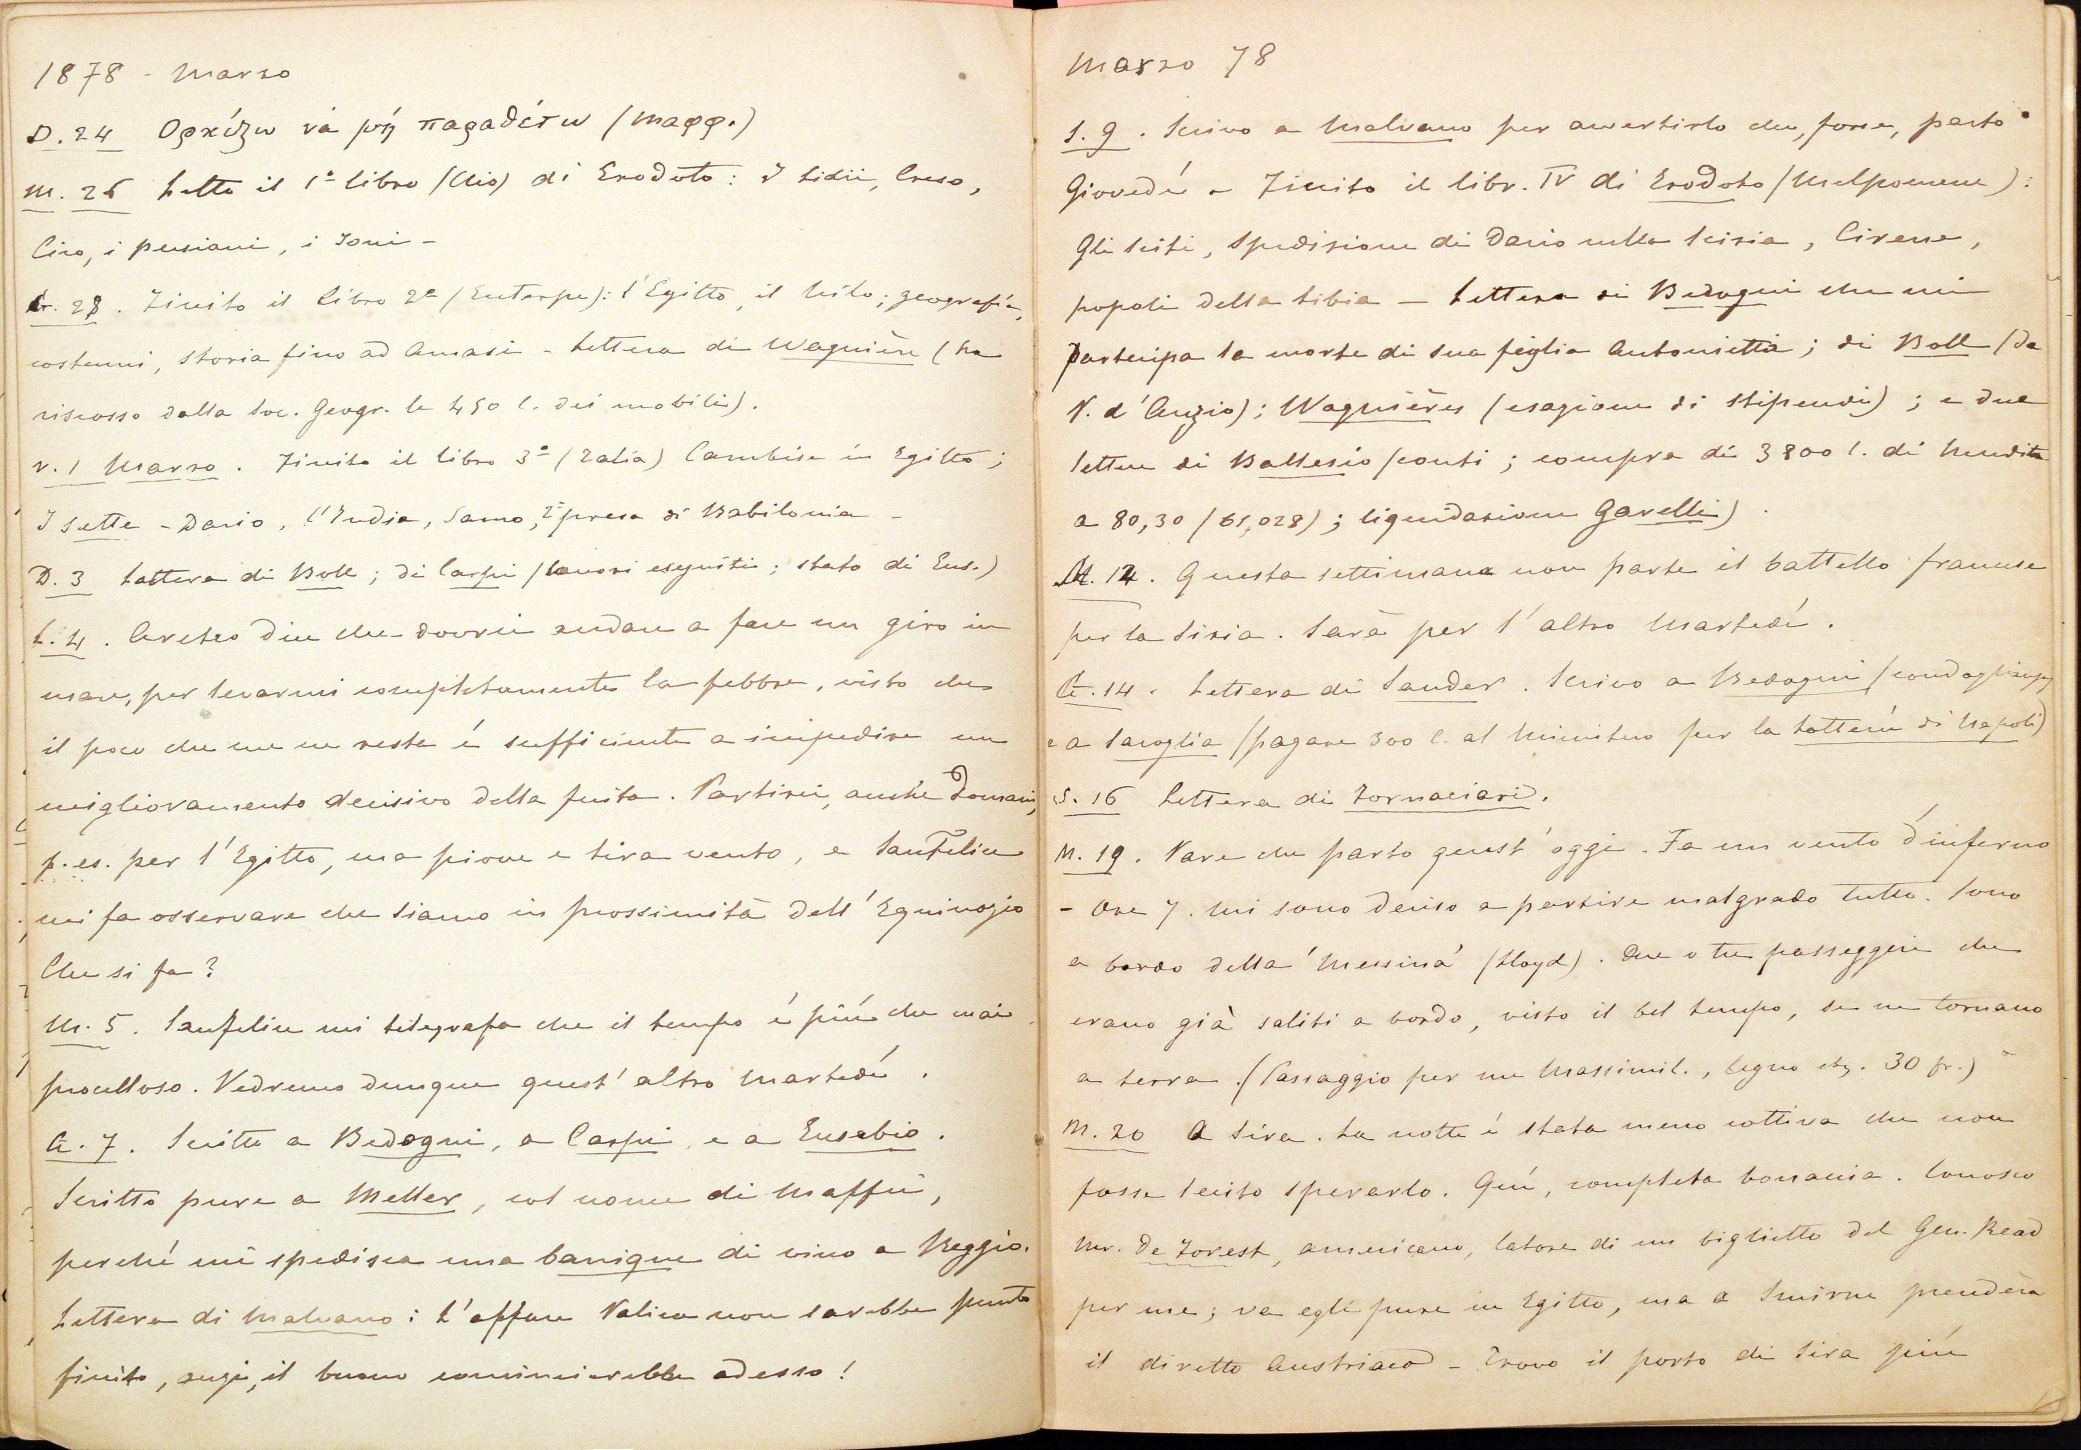 1878 - Marzo
D. 24 Ορκίζω νά μή παραθέτω (Μαφφ.)
M. 26 Letto il 1º libro (Clio) di Erodoto: I Lidii, Creso,
Ciro, i persiani, i Joni -
G. 28. Finito il libro 2º (Euterpe): l'Egitto, il Nilo; geografia,
costumi, storia fino ad Amasi - Lettera di Wagnière (ha
riscosso dalla Soc. Geogr. le 450 l. dei mobili).
V. 1 Marzo. Finito il libro 3º (Talia) Cambise in Egitto;
I sette - Dario, l'India, Samo, 2ª presa di Babilonia -
D. 3 Lettera di Boll; di Carpi (lavori eseguiti; stato di Eus.)
L. 4. Areteo dice che dovrei andare a fare un giro in
mare, per levarmi completamente la febbre, visto che
il poco che me ne resta é sufficiente a impedire un
miglioramento decisivo della ferita. Partirei, anche domani,
p. es. per l'Egitto, ma piove e tira vento, e Sanfelice
mi fa osservare che siamo in prossimità dell'Equinozio
Che si fa?
M. 5. Sanfelice mi telegrafa che il tempo é piú che mai
procelloso. Vedremo dunque quest'altro Martedí.
G. 7. Scritto a Bedogni, a Carpi e a Eusebio.
Scritto pure a Meller, col nome di Maffei,
perché mi spedisca una barrique di vino a Reggio.
Lettera di Malvano: L'affare Valica non sarebbe punto
finito, anzi, il buono comincierebbe adesso!
Marzo 78
S. 9. Scrivo a Malvano per avvertirlo che, forse, parto
Giovedí - Finito il libr. IV di Erodoto (Melpomene):
Gli Sciti, Spedizione di Dario nella Scizia, Cirene,
popoli della Libia - Lettera di Bedogni che mi
partecipa la morte di sua figlia Antonietta; di Boll (da
P. d'Anzio); Wagnières (esazione di stipendi); e due
lettere di Ballesio (conti; compra di 3800 l. di rendita
a 80,30 (61,028); liquidazione Gavelli).
M. 12. Questa settimana non parte il battello francese
per la Siria. Sarà per l'altro Martedí.
G. 14. Lettera di Sander. Scrivo a Bedogni (condoglianze)
e a Saroglia (pagare 300 l. al Ministero per la Lotteria di Napoli)
S. 16 Lettera di Fornaciari.
M. 19. Pare che parto quest'oggi. Fa un vento d'inferno
- Ore 7. Mi sono deciso a partire malgrado tutto. Sono
a bordo della 'Messina' (Lloyd). Due o tre passeggeri che
erano già saliti a bordo, visto il bel tempo, se ne tornano
a terra. (Passaggio per me Massimil., legno etz. 30 fr.)
M. 20 A Sira. La notte é stata meno cattiva che non
fosse lecito sperarlo. Quí, completa bonaccia. Conosco
Mr. De Forest, americano, latore di un biglietto del Gen. Read
per me; va egli pure in Egitto, ma a Smirne prenderà
il diretto Austriaco - Trovo il porto di Sira piú